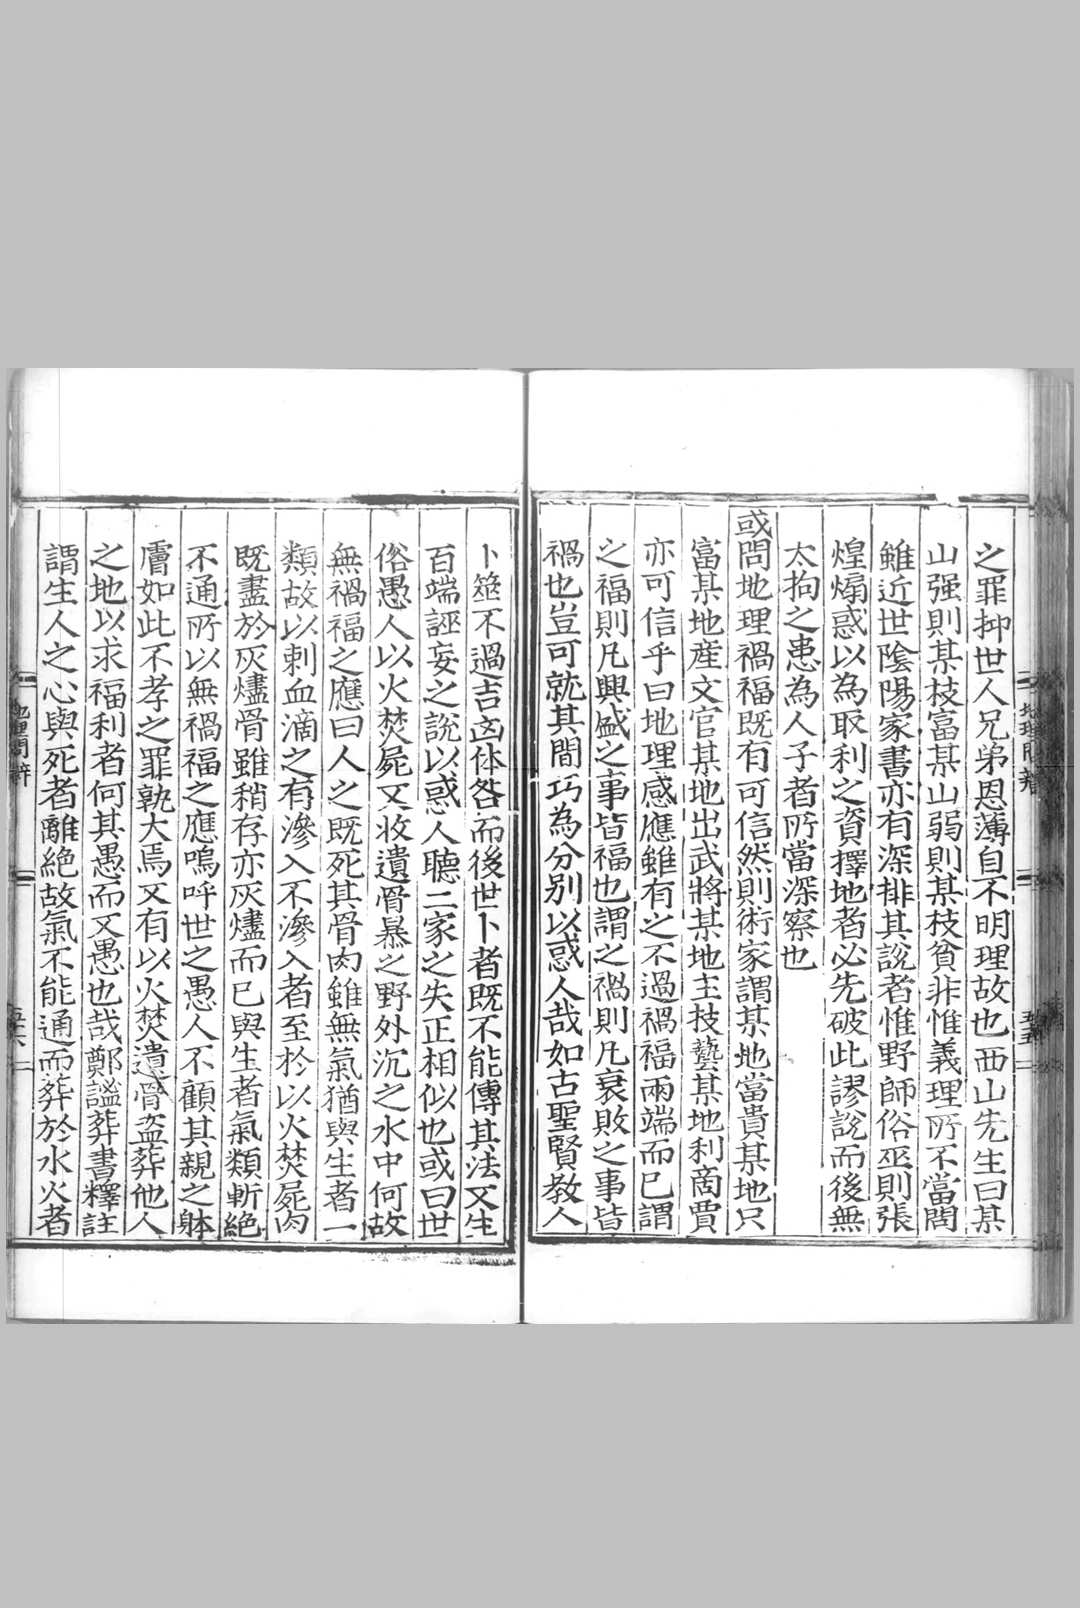 之罪抑世人兄弟恩薄自不明理故也西山先生曰某
山强則某枝富某山弱則某枝貧非惟義理所不當閧
雖近世陰陽家書亦有深排其說者惟野師俗巫則張
煌煽惑以為取利之資擇地者必先破此謬說而後無
太拘之患為人子者所當深察也
或問地理禍福既有可信然則術家謂某地當貴某地只
富某地産文官某地出武將某地主技藝某地利啇賈
亦可信乎曰地理感應雖有之不過禍福兩端而已謂
之福則凡興盛之事皆福也謂之禍則凡衰敗之事皆
禍也豈可就其間巧為分別以惑人哉如古聖賢教人
地理問辨
五十五
卜筮不過吉凶休咎而後世卜者既不能傳其法又生
百端誣妄之說以惑人聽二家之失正相似也或曰世
俗愚人以火焚屍又收遺骨暴之野外沉之水中何故
無禍福之應曰人之既死其骨肉雖無氣猶與生者一
類故以刺血滴之有滲入不滲入者至於以火焚屍肉
既盡於灰燼骨雖稍存亦灰燼而已與生者氣類斬絶
不通所以無禍福之應嗚呼世之愚人不顧其親之躰
膚如此不孝之罪孰大焉又有以火焚遺骨盗葬他人
之地以求福利者何其愚而又愚也哉鄭謐葬書釋註
謂生人之心與死者離絶故氣不能通而葬於水火者
地理問辨
五十六